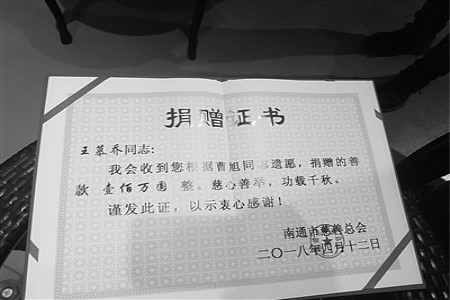 捐赠证书
王慕乔同志:
我会收到您根据曹旭同志遗愿，捐赠的善
款 壹佰万圆 整。慈心善举，功载千秋。
谨发此证，以示衷心感谢！
南通市慈善总会
二〇一八年四月十二日